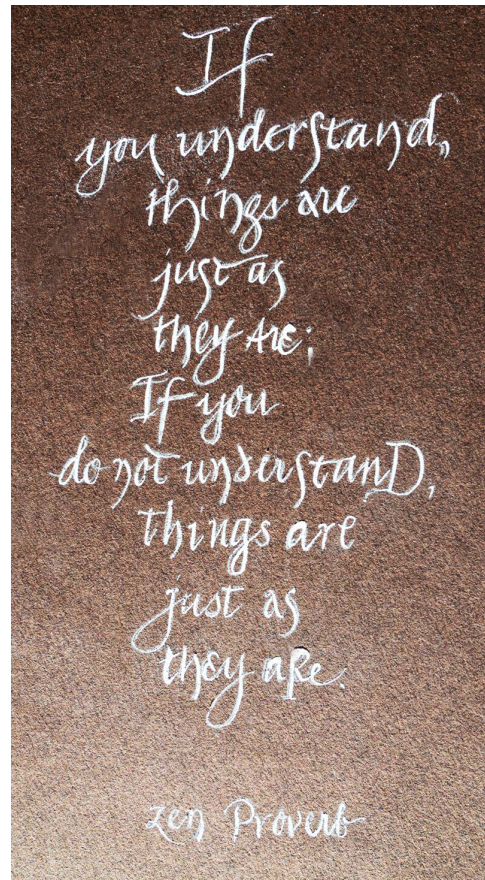 If
you understand,
things are
just as
they are;
If you
do not understanD,
things are
just as
they aRe.
zen Proverb